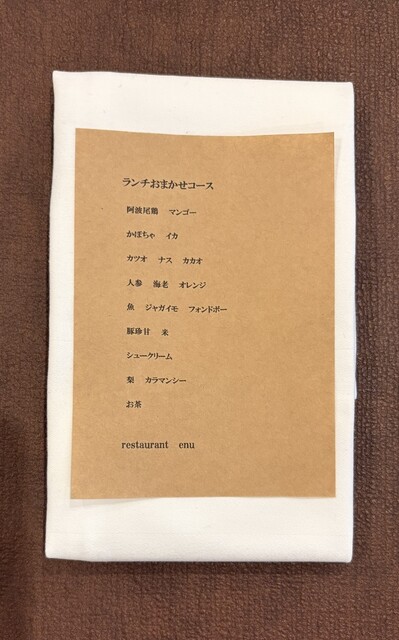 ランチおまかせコース
阿波尾鶏 マンゴー
かぼちゃ イカ
カツオ ナス カカオ
人参 海老 オレンジ
魚 ジャガイモ フォンドボー
豚珍甘 米
シュークリーム
梨 カラマンシー
お茶
restaurant enu